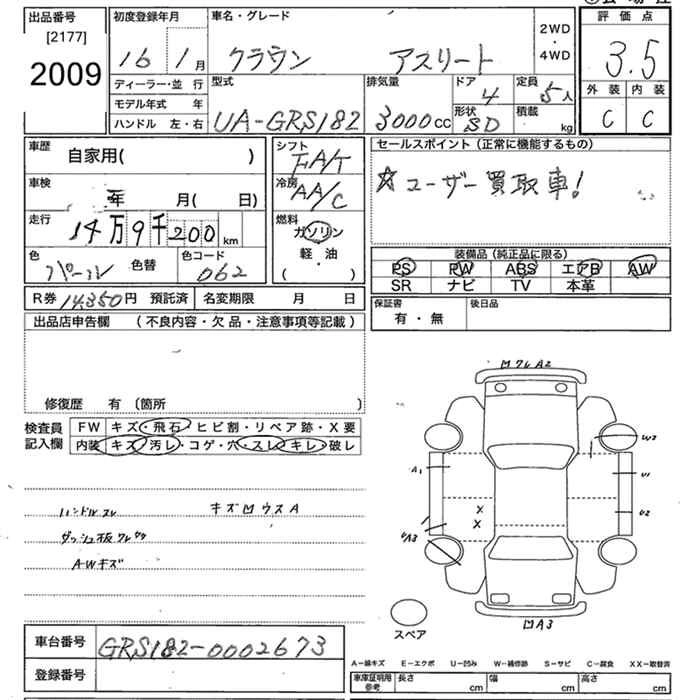 出品番号
[2177]
2009
初度登録年月
16 1月
車名・グレード
クラウン アスリート
2WD
・
4WD
評価点
3.5
外装 内装
C C
ディーラー・並行
モデル年式 年
ハンドル 左・右
型式
UA-GRS182
排気量
3000CC
ドア
4
形状
SD
定員
5人
積載
kg
車歴
自家用( )
車検
年 月( 日)
走行
14万9千200km
色
パール
色替
色コード
062
シフト
FA/T
冷房
AA/C
燃料
ガソリン
軽・油
( )
セールスポイント(正常に機能するもの)
☆ユーザー買取車!
装備品(純正品に限る)
PS PW ABS エアB AW
SR ナビ TV 本革
R券 14,350円 預託済 名変期限 月 日
保証書
有・無
後日品
出品店申告欄 (不良内容・欠品・注意事項等記載)
修復歴 有(箇所 )
検査員
記入欄
FW キズ・飛石・ヒビ割・リペア跡・X要
内装 キズ・汚レ・コゲ・穴・スレ・キレ・破レ
ハンドルスレ キズMウスA
ダッシュ板ワレ
AWキズ
MワレA2
W2
A1
U1
X
X
U2
UA3
MA3
スペア
車台番号 GRS182-0002673
登録番号
A-線キズ E-エクボ U-凹み W-補修跡 S-サビ C-腐食 XX-取替済
車庫証明用
参考
長さ cm 幅 cm 高さ cm